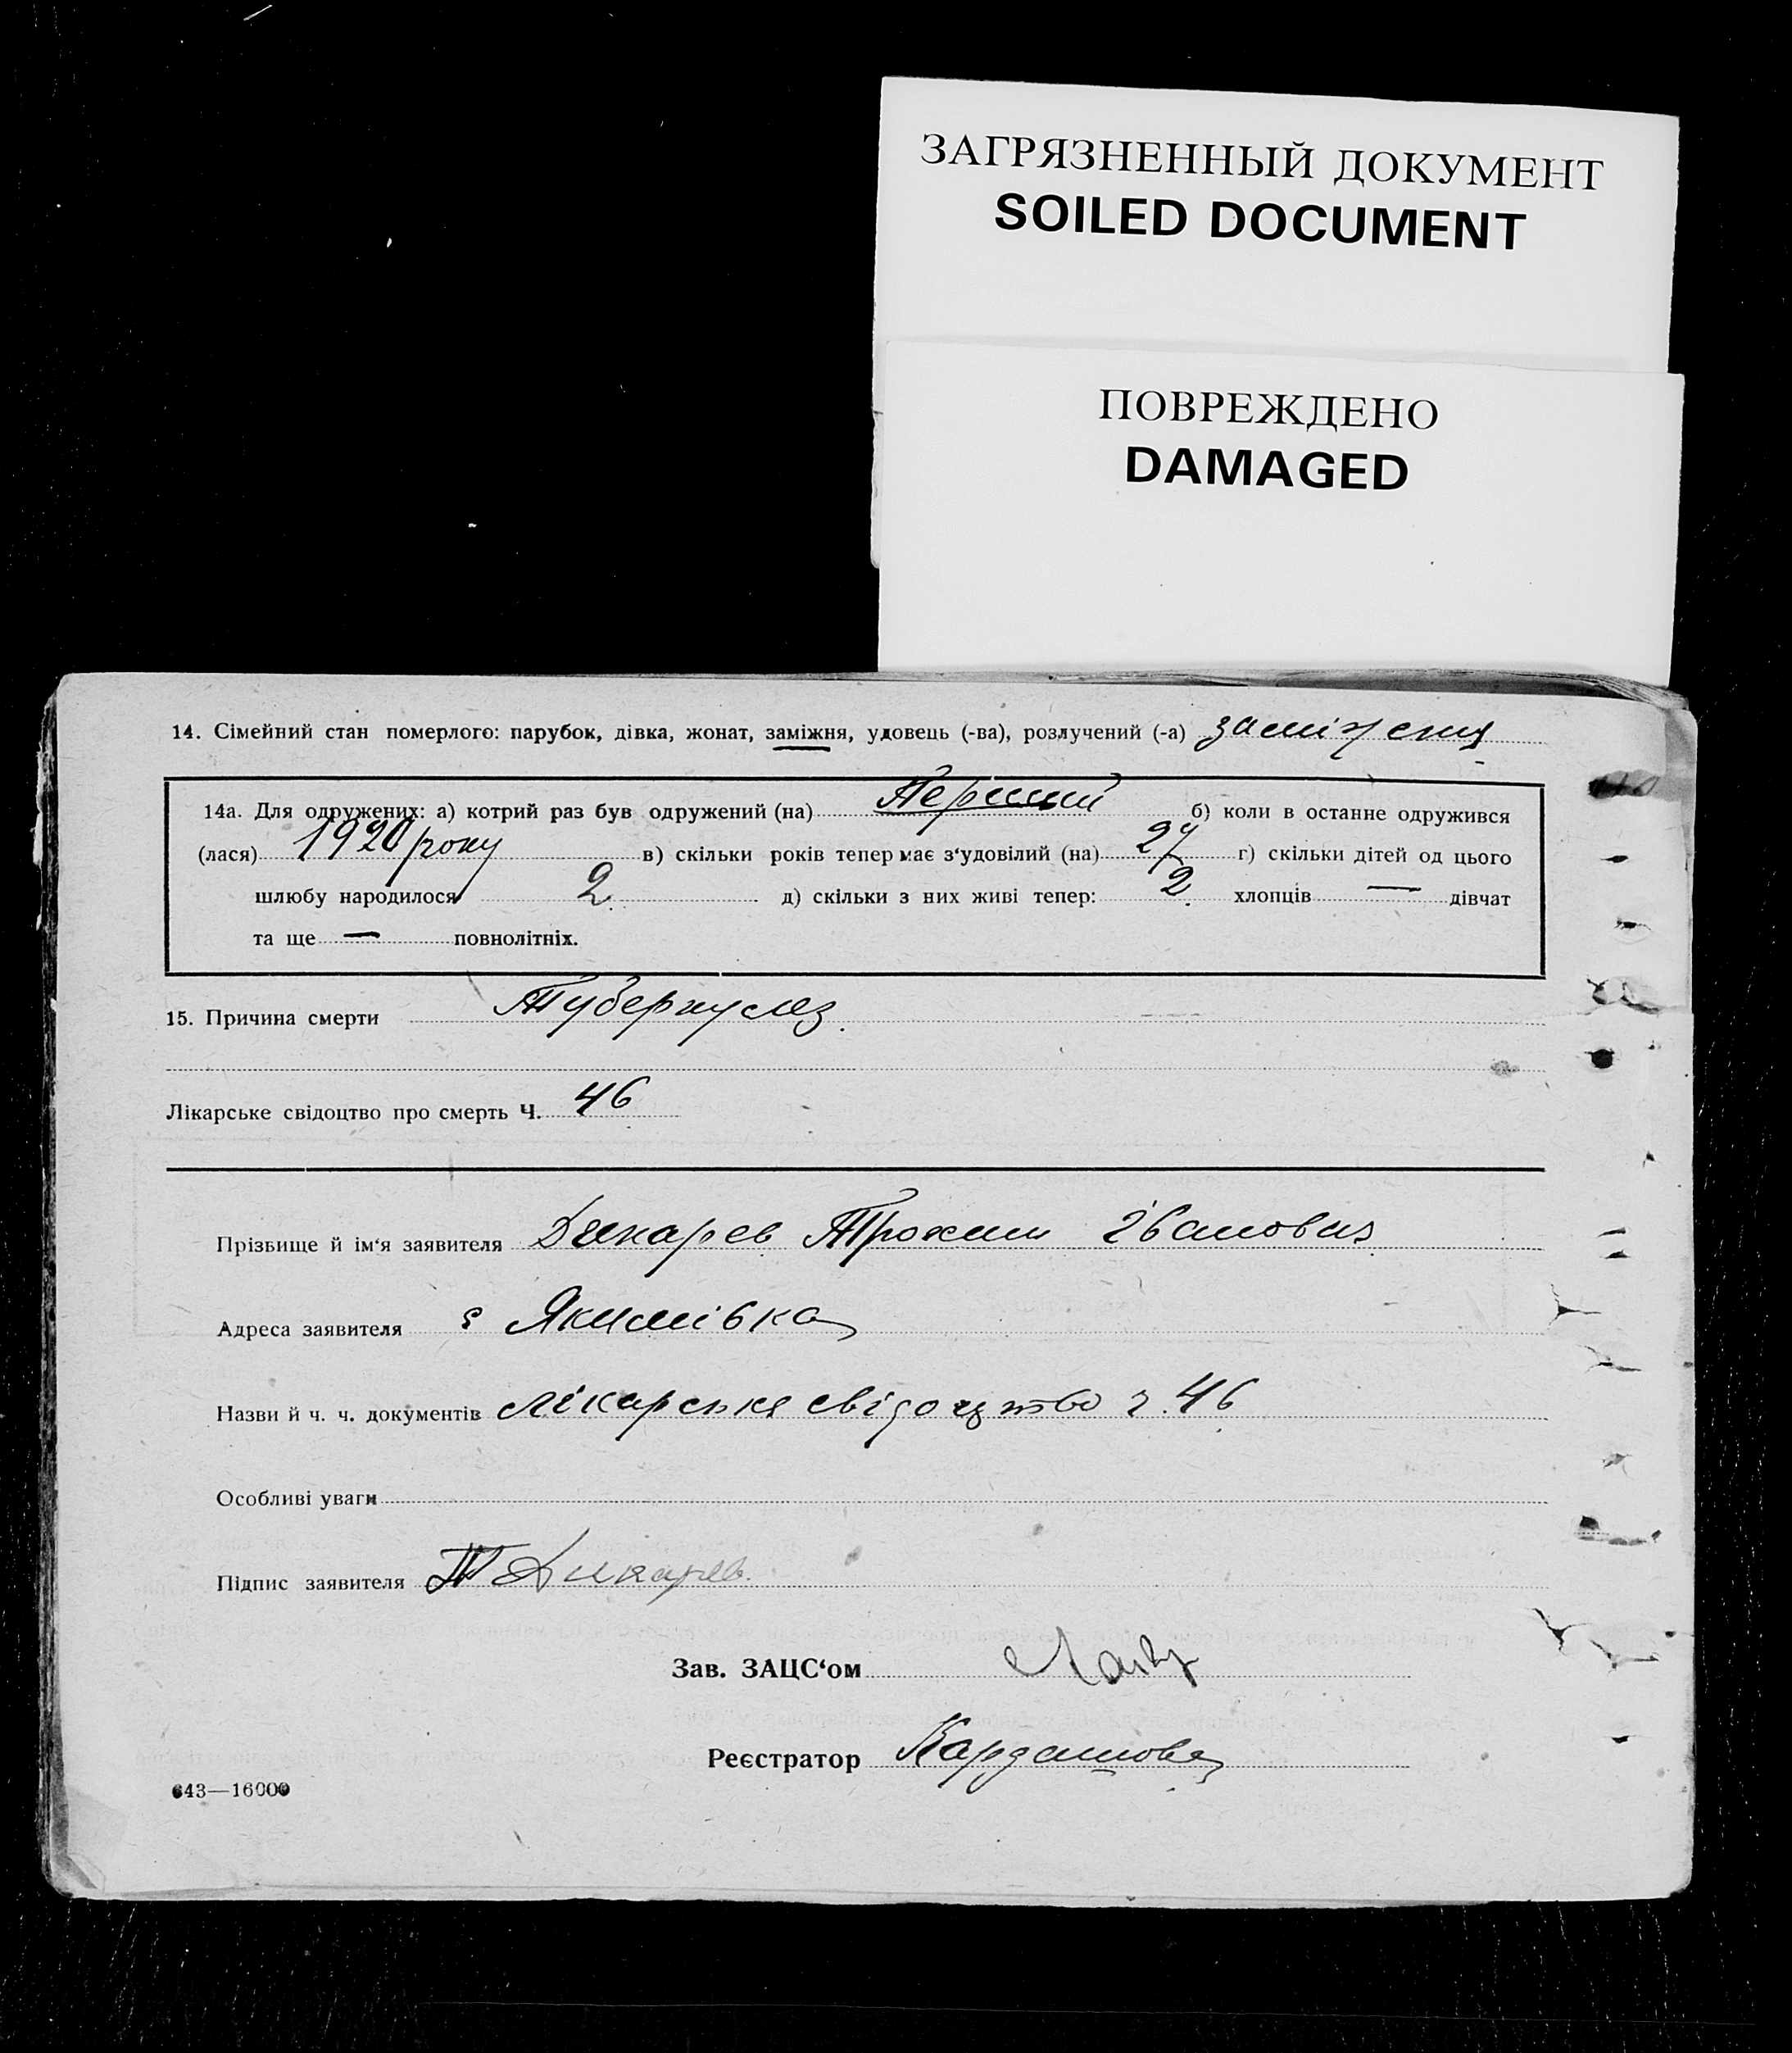 ЗАГРЯЗНЕННЫЙ ДОКУМЕНТ
SOILED DOCUMENT
ПОВРЕЖДЕНО
DAMAGED
14. Сімейний стан померлого: парубок, дівка, жонат, заміжня, удовець (-ва), розлучений (-а) заміжня
14а. Для одружених: а) котрий раз був одружений (на) Перший б) коли в останне одружився
(лася) 1920 року в) скільки років тепер має з‘удовілий (на) 27 г) скільки дітей од цього
шлюбу народилося 2 д) скільки з них живі тепер: 2 хлопців — дівчат
та ще — повнолітніх.
15. Причина смерти Туберкулез.
Лікарське свідоцтво про смерть Ч. 46
Прізвище й ім‘я заявителя Дикарев Трохим Іванович
Адреса заявителя с Якимівка
Назви й ч. ч. документів лікарське свідоцтво ч. 46
Особливі уваги
Підпис заявителя Т Дикарев.
Зав. ЗАЦС‘ом
Реєстратор Кардашова
643—16000